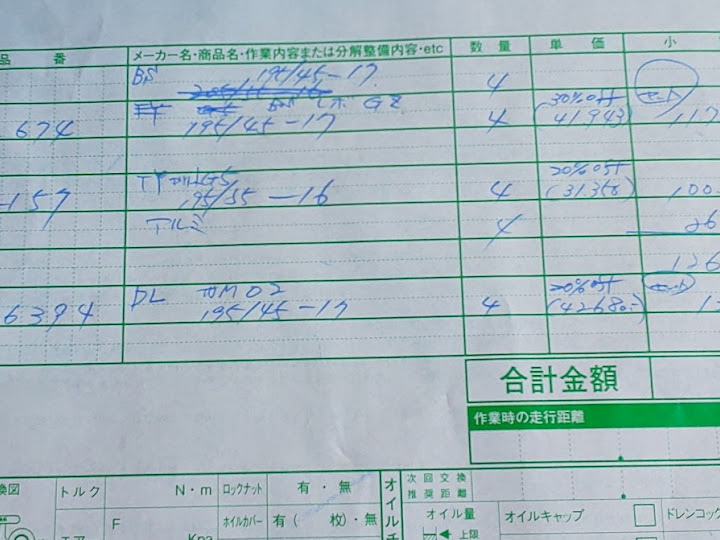 品 番 メーカー名・商品名・作業内容または分解整備内容・etc 数 量 単 価 小
BS 195/45-17 4
30%off
674 195/45-17 4 (41.943) 117
20%off
-157 195/55-16 4 (31.358) 100
アルミ 4 26
126
DL WM02 20%off
6394 195/45-17 4 (42680.-)
合計金額
作業時の走行距離
換図 トルク N・m ロックナット 有・無 次回交換
推奨距離
F ホイルカバー 有( 枚)・無 オイル量 オイルキャップ ドレンコック
エア Kpa 上限